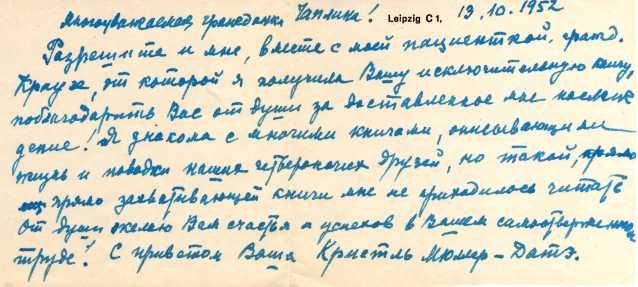 Многоуважаемая гражданка Чаплина! Leipzig C 1, 13.10.1952
Разрешите и мне, вместе с моей пациенткой, гражд.
Краузе, от которой я получила Вашу исключительную книгу,
поблагодарить Вас от души за доставленное мне наслаж
дение! Я знакома с многими книгами, описывающими
жизнь и повадки наших четвероногих друзей, но такой, прямо
прямо захватывающей книги мне не приходилось читать
От души желаю Вам счастья и успехов в Вашем самоотверженном
труде! С приветом Ваша Кристль Мюллер-Датэ.